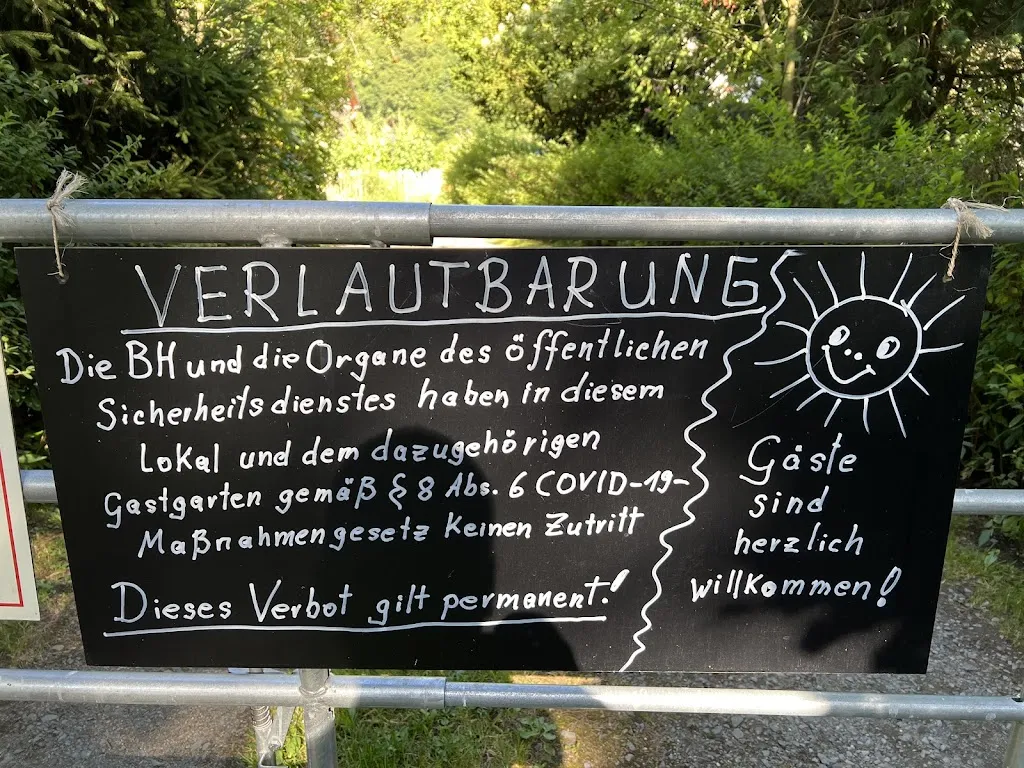 VERLAUTBARUNG
Die BH und die Organe des öffentlichen
Sicherheitsdienstes haben in diesem
Lokal und dem dazugehörigen
Gastgarten gemäß § 8 Abs. 6 COVID-19-
Maßnahmengesetz keinen Zutritt
Dieses Verbot gilt permanent!
Gäste
sind
herzlich
willkommen!